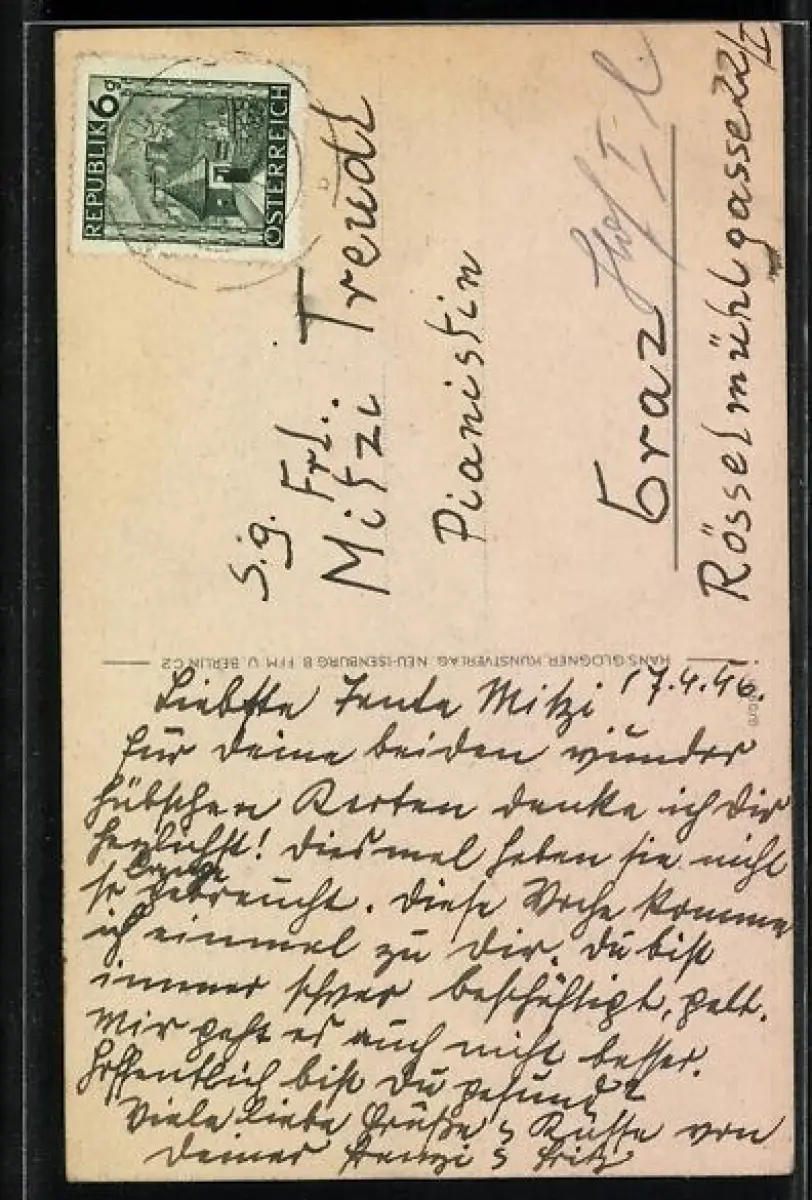 REPUBLIK 6g ÖSTERREICH
S.g. Frl.
Mitzi Treudl
Pianistin
Graz
Hof I l.
Rösselmühlgasse 22/I
HANS GLOGNER, KUNSTVERLAG, NEU-ISENBURG B. FFM. U. BERLIN C2
17.4.46.
Liebste Tante Mitzi
für deine beiden wunder
hübschen Karten danke ich dir
herzlichst! Diesmal haben sie nicht
so lange gebraucht. Diese Woche komme
ich einmal zu Dir. Du bist
immer schwer beschäftigt, gelt.
Mir geht es auch nicht besser.
Hoffentlich bist Du gesund?
Viele liebe Grüße & Küsse von
Deiner & Fritz